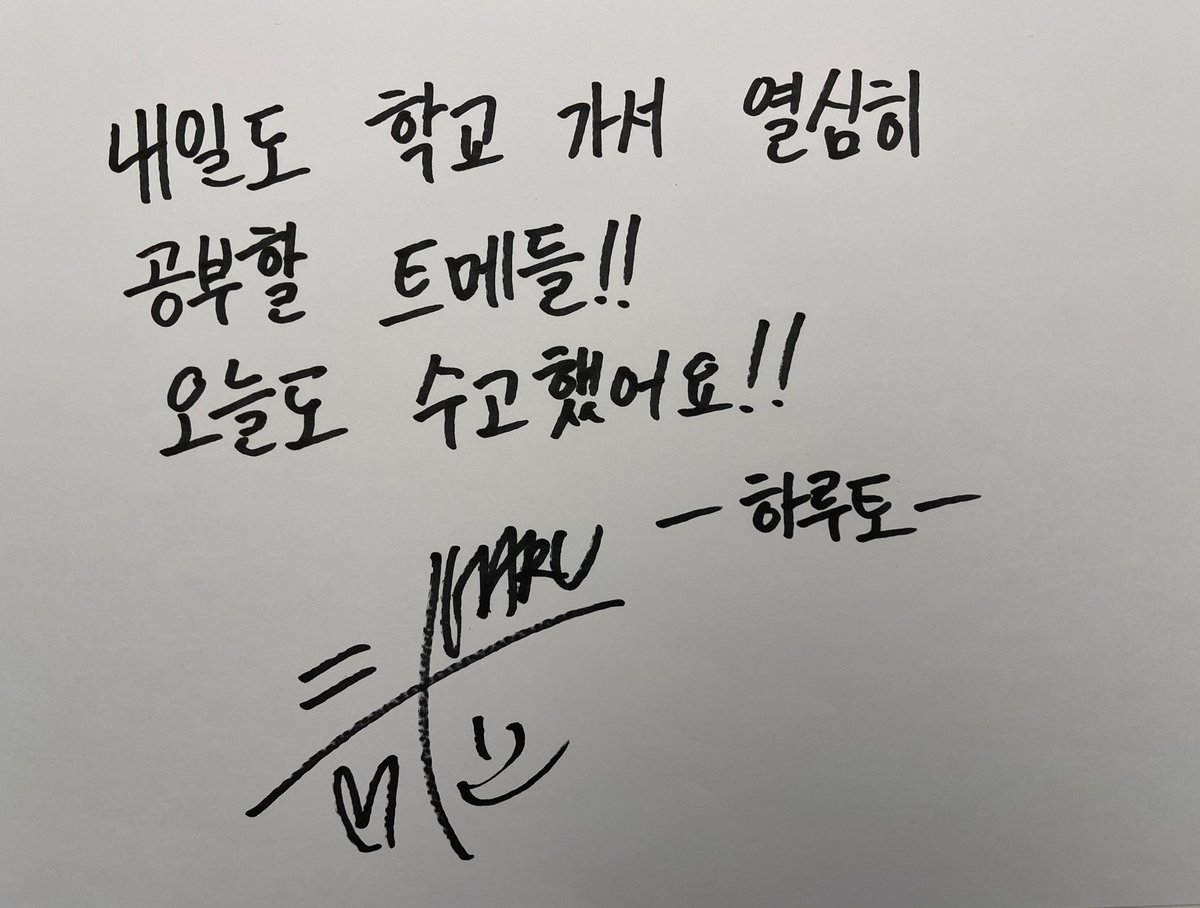 내일도 학교 가서 열심히
공부할 트메들!!
오늘도 수고했어요!!
- 하루토 -
HARU